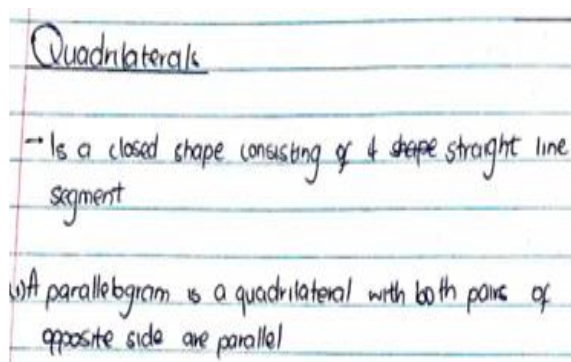 Quadrilaterals
- Is a closed shape consisting of 4 shape straight line
segment
i) A parallelogram is a quadrilateral with both pairs of
opposite side are parallel